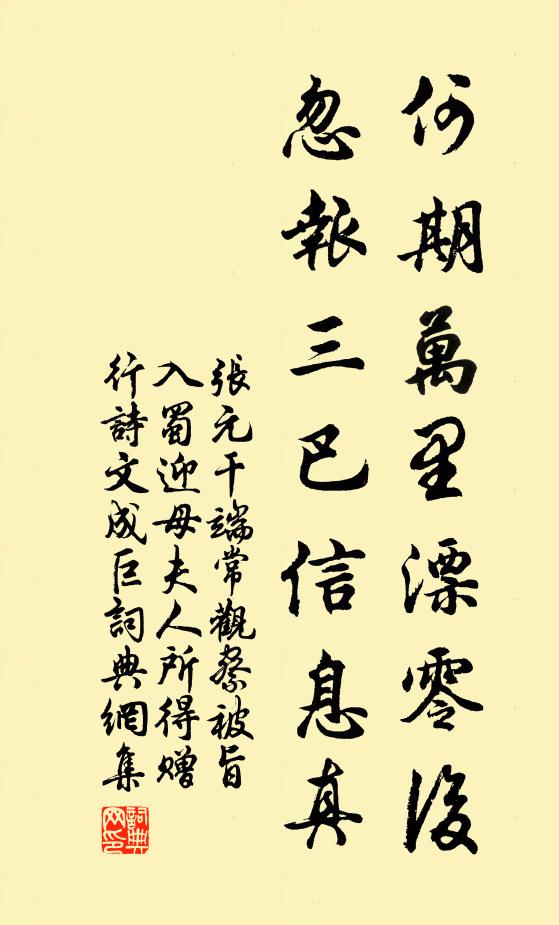 何期萬里漂零後
忽報三巴信息真
張元干端常觀察被旨
入蜀迎母夫人所得贈
行詩文成巨詞典網集
詞典網印